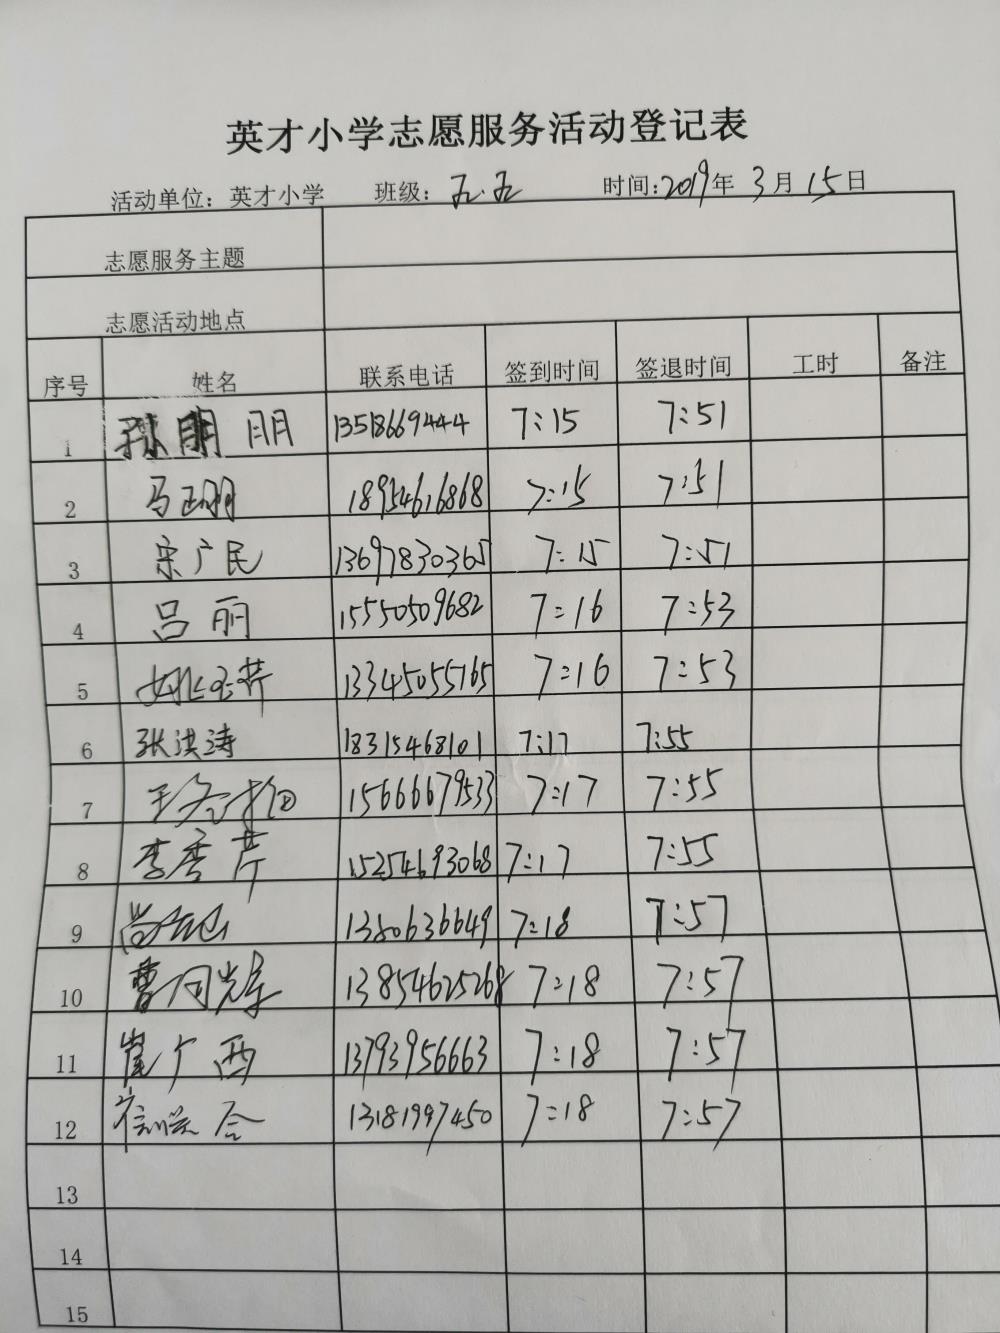 英才小学志愿服务活动登记表
活动单位：英才小学 班级：五.五 时间:2019年3月15日
志愿服务主题
志愿活动地点
序号 姓名 联系电话 签到时间 签退时间 工时 备注
1 孙明明 13518669444 7:15 7:51
2 马 18954616868 7:15 7:51
3 宋广民 13697830365 7:15 7:51
4 吕丽 15550509682 7:16 7:53
5 姚玉芹 13345055165 7:16 7:53
6 张洪涛 18315468101 7:17 7:55
7 王 15666679533 7:17 7:55
8 李秀芹 15254693068 7:17 7:55
9 尚 1380636649 7:18 7:57
10 曹 13854625268 7:18 7:57
11 崔广西 13793956663 7:18 7:57
12 13181997450 7:18 7:57
13
14
15